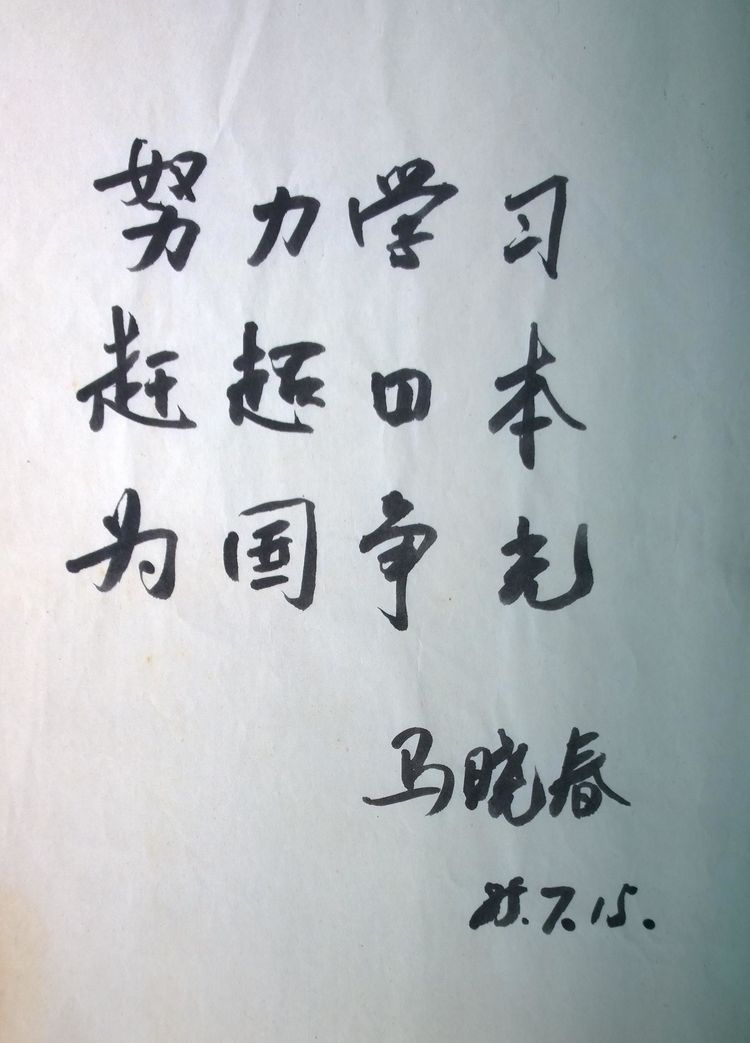 努力学习
赶超日本
为国争光
马晓春
85.7.15.